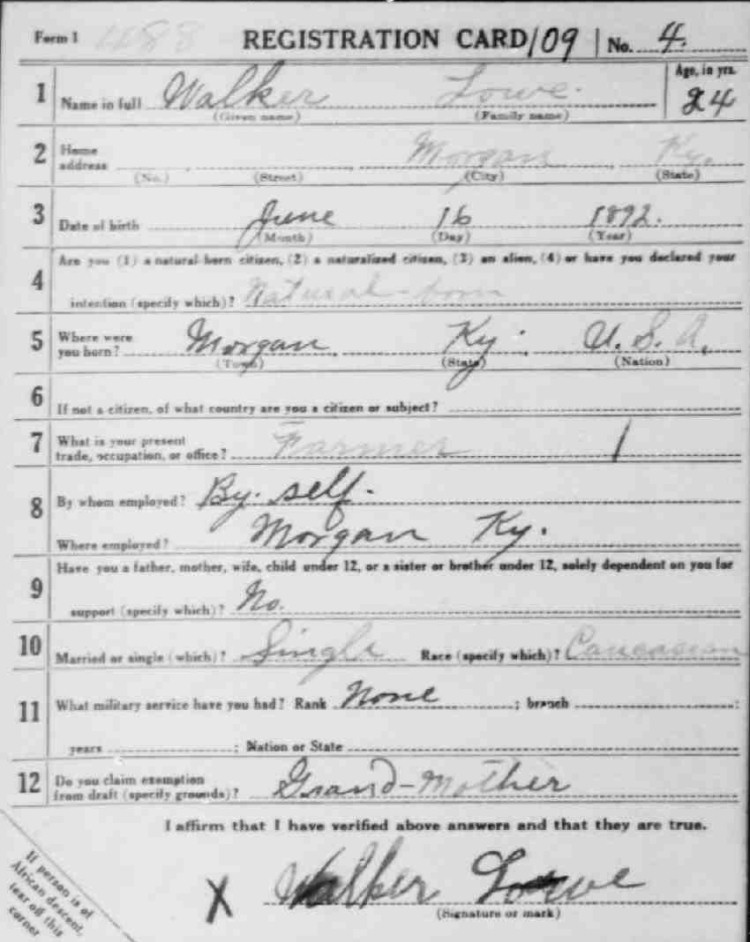 Form 1 488 REGISTRATION CARD /09 No. 4.
1 Name in full Walker Lowe. Age, in yrs. 24
(Given name) (Family name)
2 Home address Morgan Ky.
(No.) (Street) (City) (State)
3 Date of birth June 16 1892.
(Month) (Day) (Year)
4 Are you (1) a natural-born citizen, (2) a naturalized citizen, (3) an alien, (4) or have you declared your
intention (specify which)? Natural-born
5 Where were you born? Morgan Ky. U.S.A.
(Town) (State) (Nation)
6 If not a citizen, of what country are you a citizen or subject?
7 What is your present trade, occupation, or office? Farmer 1
8 By whom employed? By self.
Where employed? Morgan Ky.
9 Have you a father, mother, wife, child under 12, or a sister or brother under 12, solely dependent on you for
support (specify which)? No.
10 Married or single (which)? Single Race (specify which)? Caucasian
11 What military service have you had? Rank None ; branch ;
years ; Nation or State
12 Do you claim exemption from draft (specify grounds)? Grand-Mother
I affirm that I have verified above answers and that they are true.
X Walker Lowe
(Signature or mark)
If person is of
African descent,
tear off this
corner